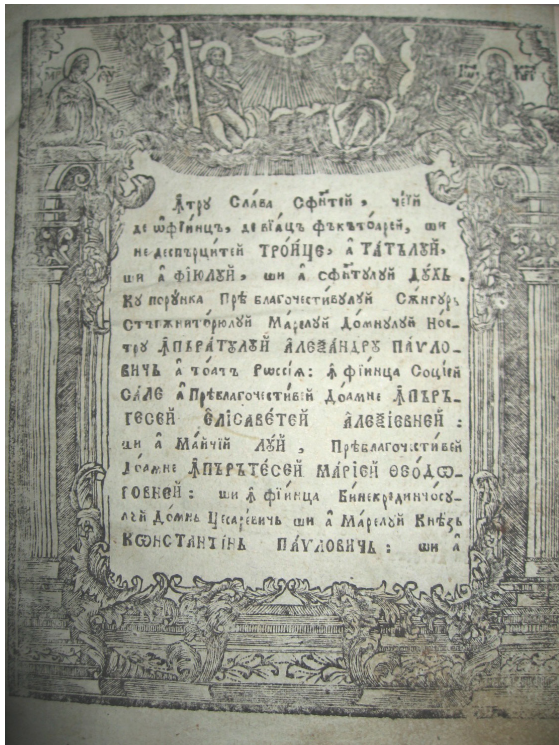 Ꙟтру Сла́ва Сфн҃тей, чеїй
де ѡ҆фїинцъ, де вїацъ фъкъто́арей, ши
недеспърци́тей ТРО́ИЦЕ, а҆ ТА́ТЪЛꙊЙ,
ши а҆ ФІЮЛꙊЙ, ши а҆ сфн҃тулуй ДꙊ́ХЬ.
Ку порꙋнка Прѣ благочестивулуй Сӂнгурь
Стъпънито́рюлуй Ма́релуй До́мнулуй Нос-
тру Ꙟ҆ПЪРА́ТУЛУЙ А҆ЛЕѮА́НДРУ ПА́ѴЛО-
ВИЧЬ а҆ то́атъ Рѡссїѧ: Ꙟ҆ фїинца Соцїей
СА́ЛЕ а҆ Прѣблагочести́вей До́амне Ꙟ҆ПЪРЪ-
ТЕСЕЙ Е҆ЛІСАВЕ́ТЕЙ А҆ЛЕѮІ́ЕВНЕЙ:
ши а҆ Ма́йчїй ЛꙊЙ, Прѣблагочестивей
До́амне Ꙟ҆ПЪРЪТЕ́СЕЙ МАРІ́ЕЙ ѲЕОДѠ-
РОВНЕЙ: ши Ꙟ҆ фїинца Бинекрединчо́су-
луй До́мнь Цесаре́вичь ши а҆ Ма́релуй Кнѣзь
КѠНСТАНТІ́НЬ ПА́ѴЛОВИЧЬ: ши а҆